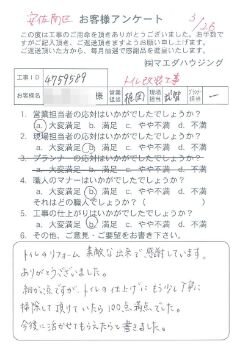 安佐南区 お客様アンケート 3/26
この度は工事のご用命を頂きありがとうございました。お手数で
すがご記入頂き、ご返送頂きますようお願い申し上げます。
ご返送頂いた方から、毎月抽選で感謝品を差し上げます。
㈱マエダハウジング
工事ID 4759589 トイレ改装工事
お客様名 様 営業担当 現場担当 プランナー担当 ー
1. 営業担当者の応対はいかがでしたでしょうか?
a. 大変満足 b. 満足 c. やや不満 d. 不満
2. 現場担当者の応対はいかがでしたでしょうか?
a. 大変満足 b. 満足 c. やや不満 d. 不満
3. プランナーの応対はいかがでしたでしょうか?
a. 大変満足 b. 満足 c. やや不満 d. 不満
4. 職人のマナーはいかがでしたでしょうか?
a. 大変満足 b. 満足 c. やや不満 d. 不満
それはどの職人でしょうか( )
5. 工事の仕上がりはいかがでしたでしょうか?
a. 大変満足 b. 満足 c. やや不満 d. 不満
6. その他、ご意見・ご要望をお書き下さい。
トイレのリフォーム 素敵な出来で感謝しています。
ありがとうございました。
細かい点ですが、トイレの仕上げにもう少し丁寧に
掃除して頂けていたら100点満点でした。
今後に活かせてもらえたらと書きました。